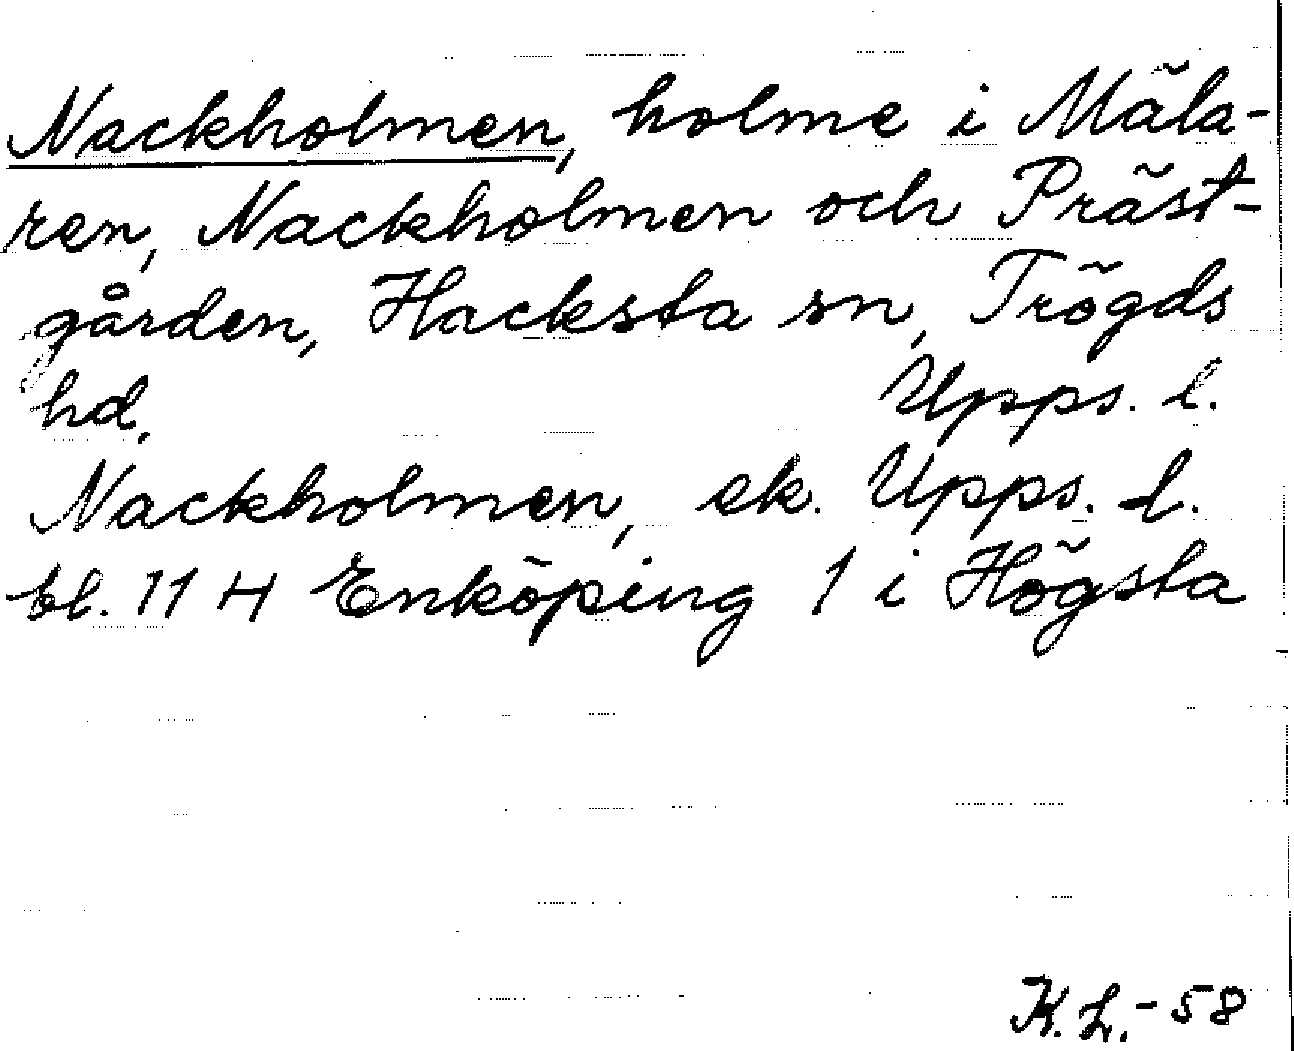 Nackholmen, holme i Mäla-
ren, Nackholmen och Präst-
gården, Hacksta sn, Trögds
hd. Upps. l.
Nackholmen, ek. Upps. l.
bl. 11 H Enköping 1 i Högsta
K. L. - 58